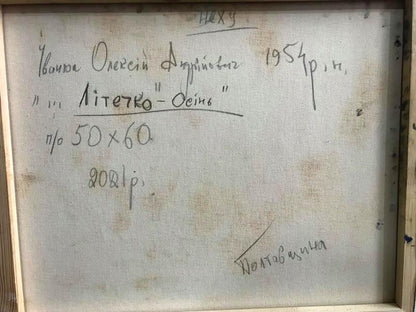 НСХУ
Іванюк Олексій Андрійович 1954 р.н.
" ... Літечко"-Осінь"
п/о 50х60.
2021р.
Полтавщина